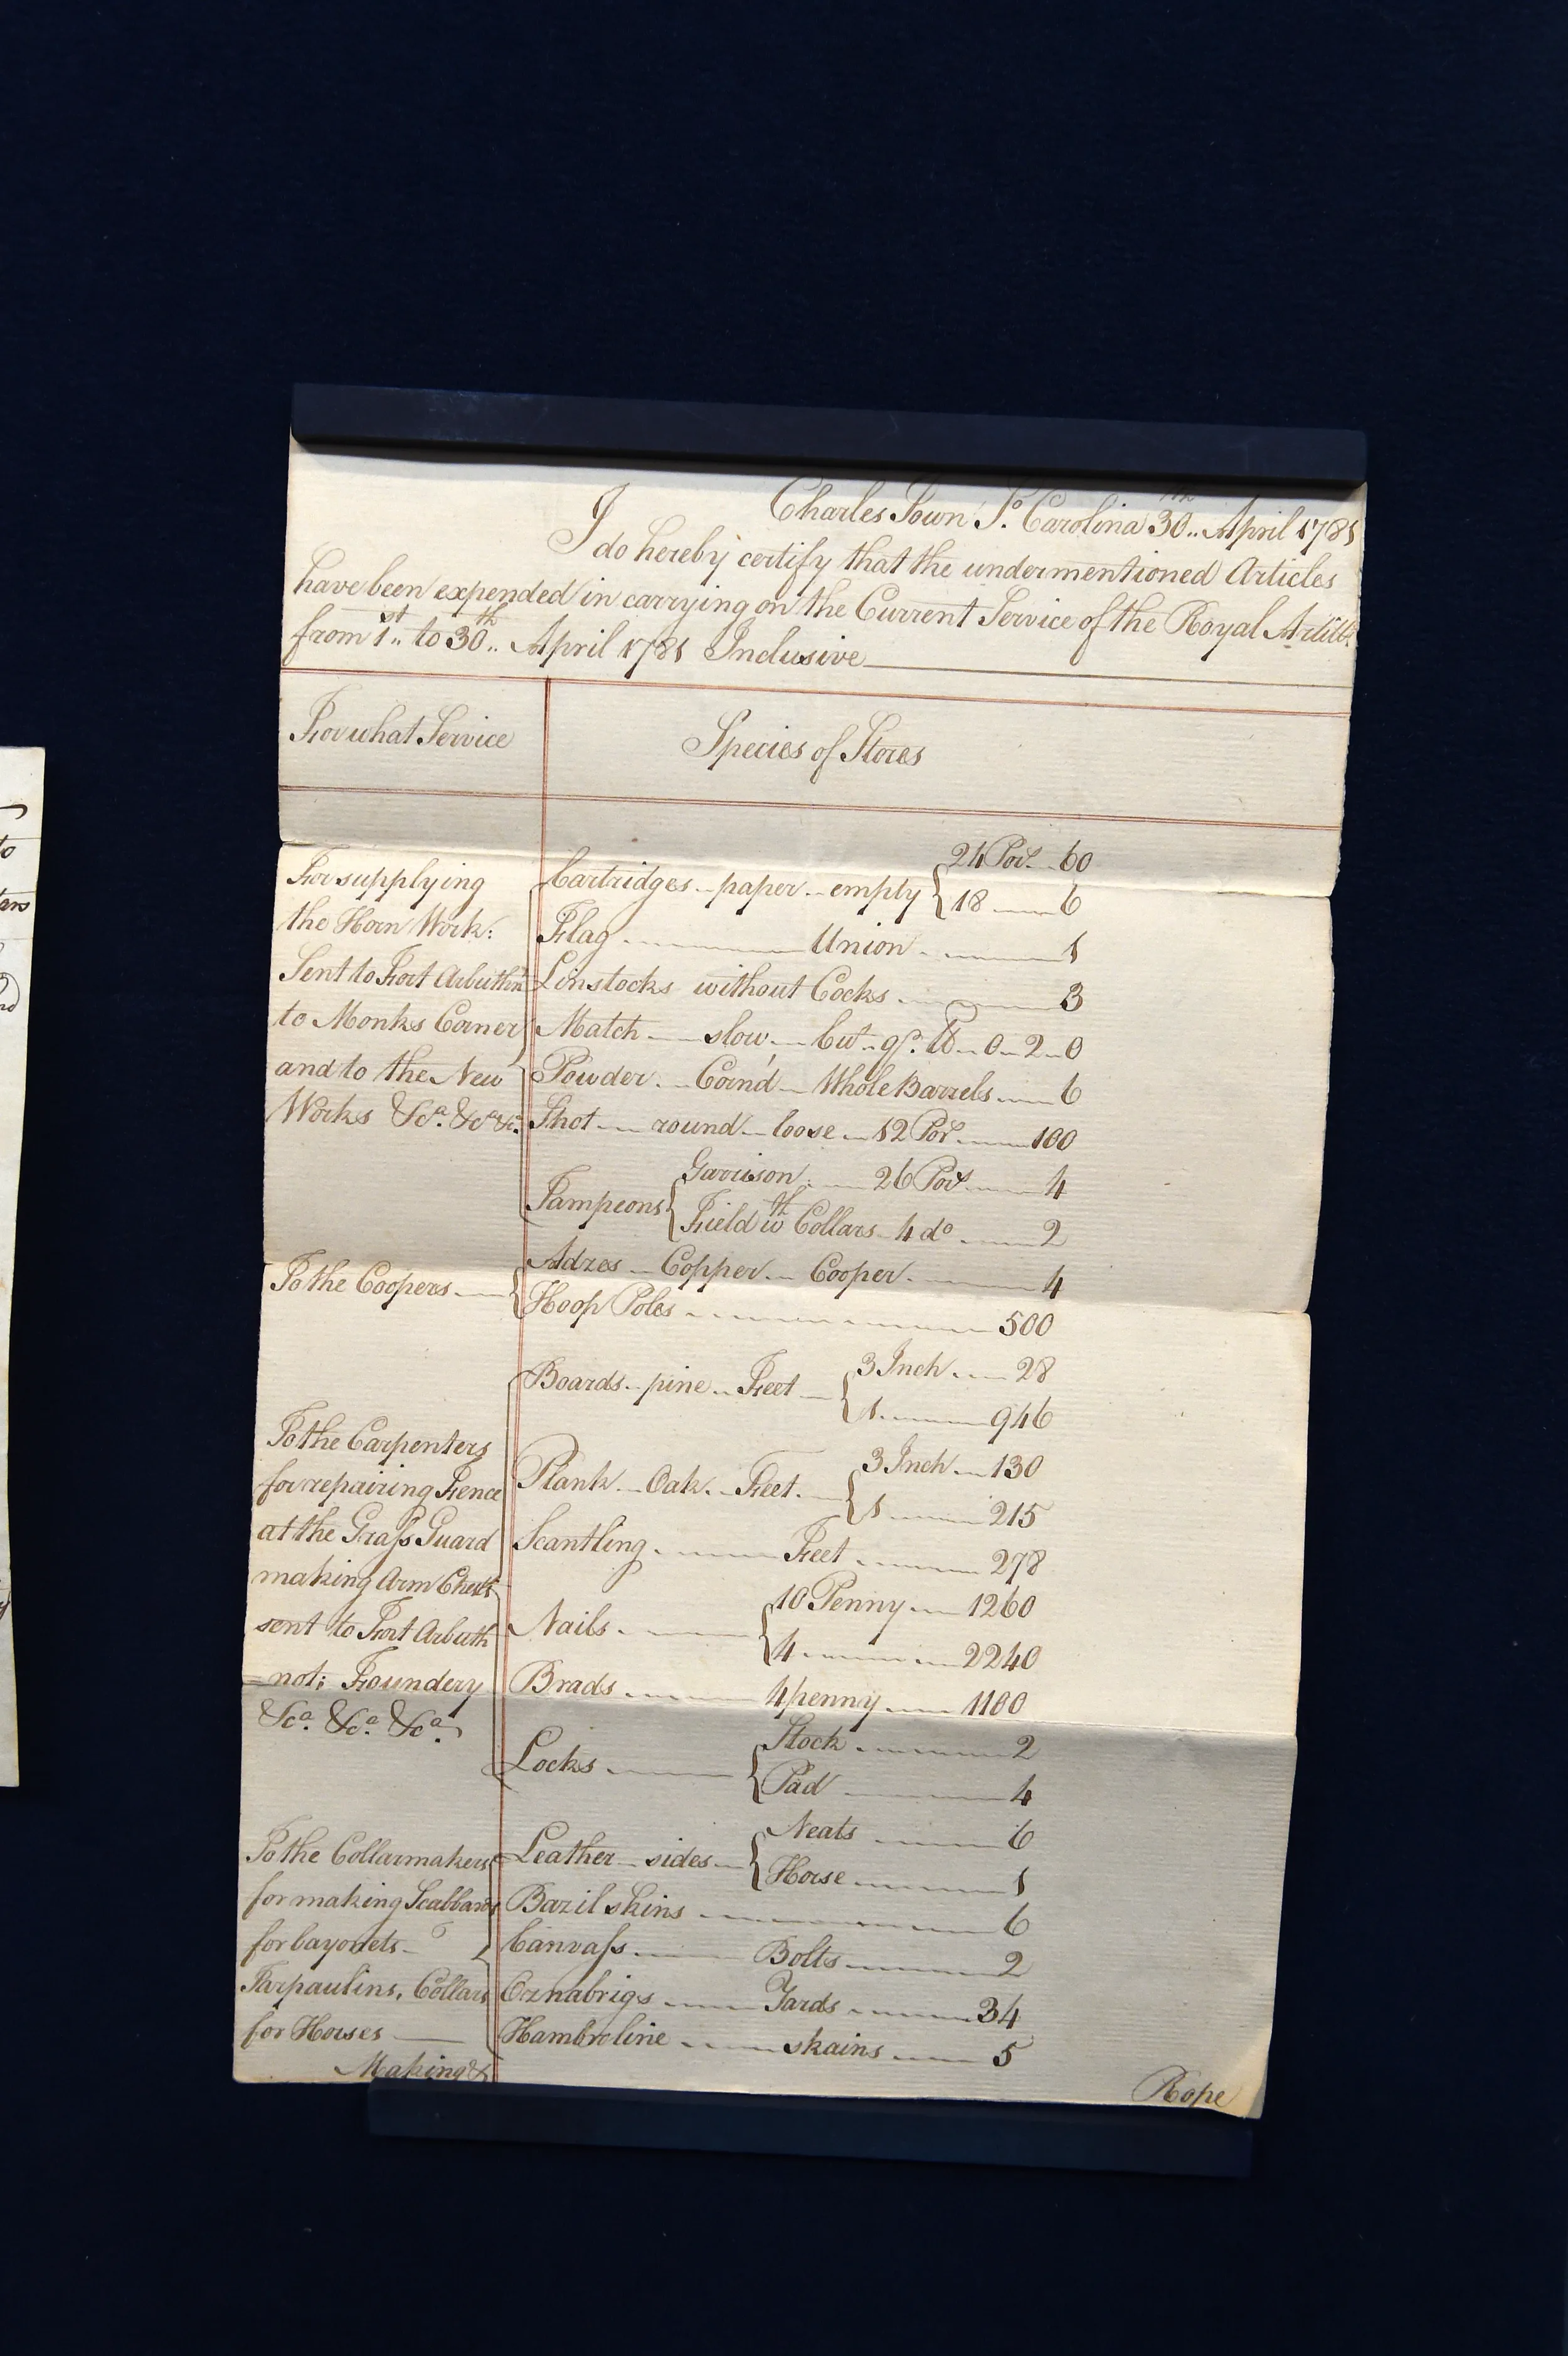 Charles Town So. Carolina 30th April 1781
I do hereby certify that the undermentioned Articles
have been expended in carrying on the Current Service of the Royal Artill.
from 1st to 30th April 1781 Inclusive
For what Service Species of Stores
For supplying
the Horn Work:
Sent to Fort Arbuthnt
to Monks Corner
and to the New
Works &ca. &ca &c.
Cartridges paper empty { 24 Por. 60
18 6
Flag Union 1
Linstocks without Cocks 3
Match slow, Cwt. qr. lb 0 2 0
Powder Corn'd Whole Barrels 6
Shot round loose 12 Por 100
Tampeons { Garrison 26 Por 4
Field wth Collars 4 do 2
To the Coopers { Adzes Copper Cooper 4
Hoop Poles 500
To the Carpenters
for repairing Fence
at the Grass Guard
making Arm Chests
sent to Fort Arbuth
=not; Foundery
&ca. &ca. &ca.
Boards pine Feet { 3 Inch 28
1 946
Plank Oak Feet { 3 Inch 130
1 215
Scantling Feet 278
Nails { 10 Penny 1260
4 2240
Brads 4 penny 1100
Locks { Stock 2
Pad 4
To the Collarmakers
for making Scabbards
for bayonets
Tarpaulins, Collars
for Horses
Making &
Leather sides { Neats 6
Horse 1
Bazil skins 6
Canvass Bolts 2
Oznabrigs Yards 34
Hambroline skains 5
Rope
to